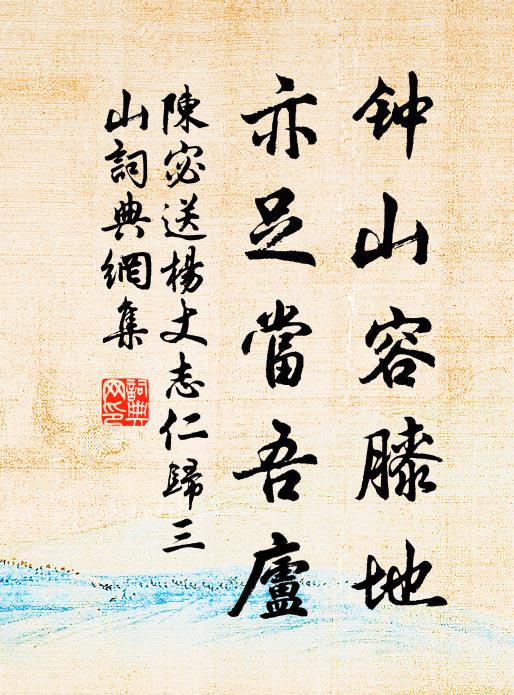 钟山容膝地
亦足當吾廬
陳宓送楊丈志仁歸三
山詞典網集
詞典
网印